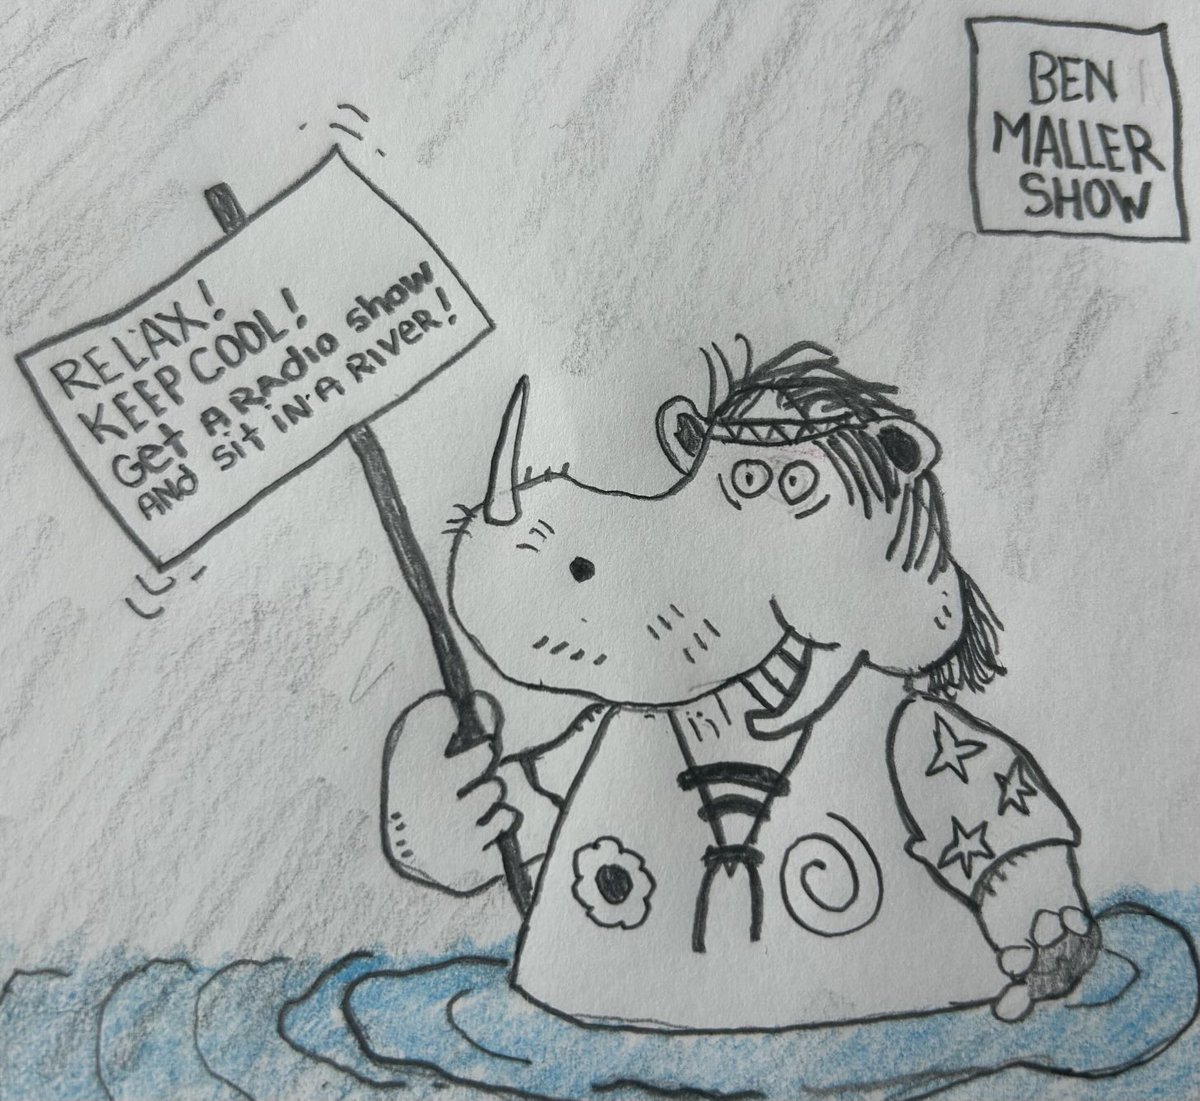 RELAX!
KEEP COOL!
Get A RAdio show
ANd sit IN A RIVeR!
BEN
MALLER
SHOW